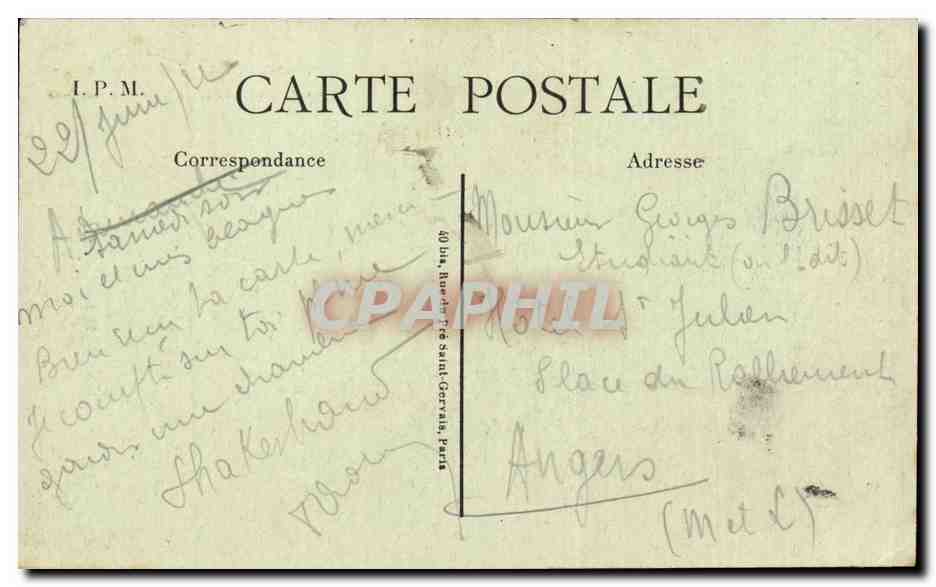 I. P. M.
CARTE POSTALE
Correspondance
Adresse
22/ Juin/
Samedi soir
moi et mes blagues
Bien reçu ta carte, merci
Je compte sur toi pour
garder une chambre
Shakehand
40 bis, Rue du Pré Saint-Gervais, Paris
Monsieur Georges Brisset
Etudiant (on l'dit)
Hôtel St Julien
Place du Ralliement
Angers
(M et L)
CPAPHIL